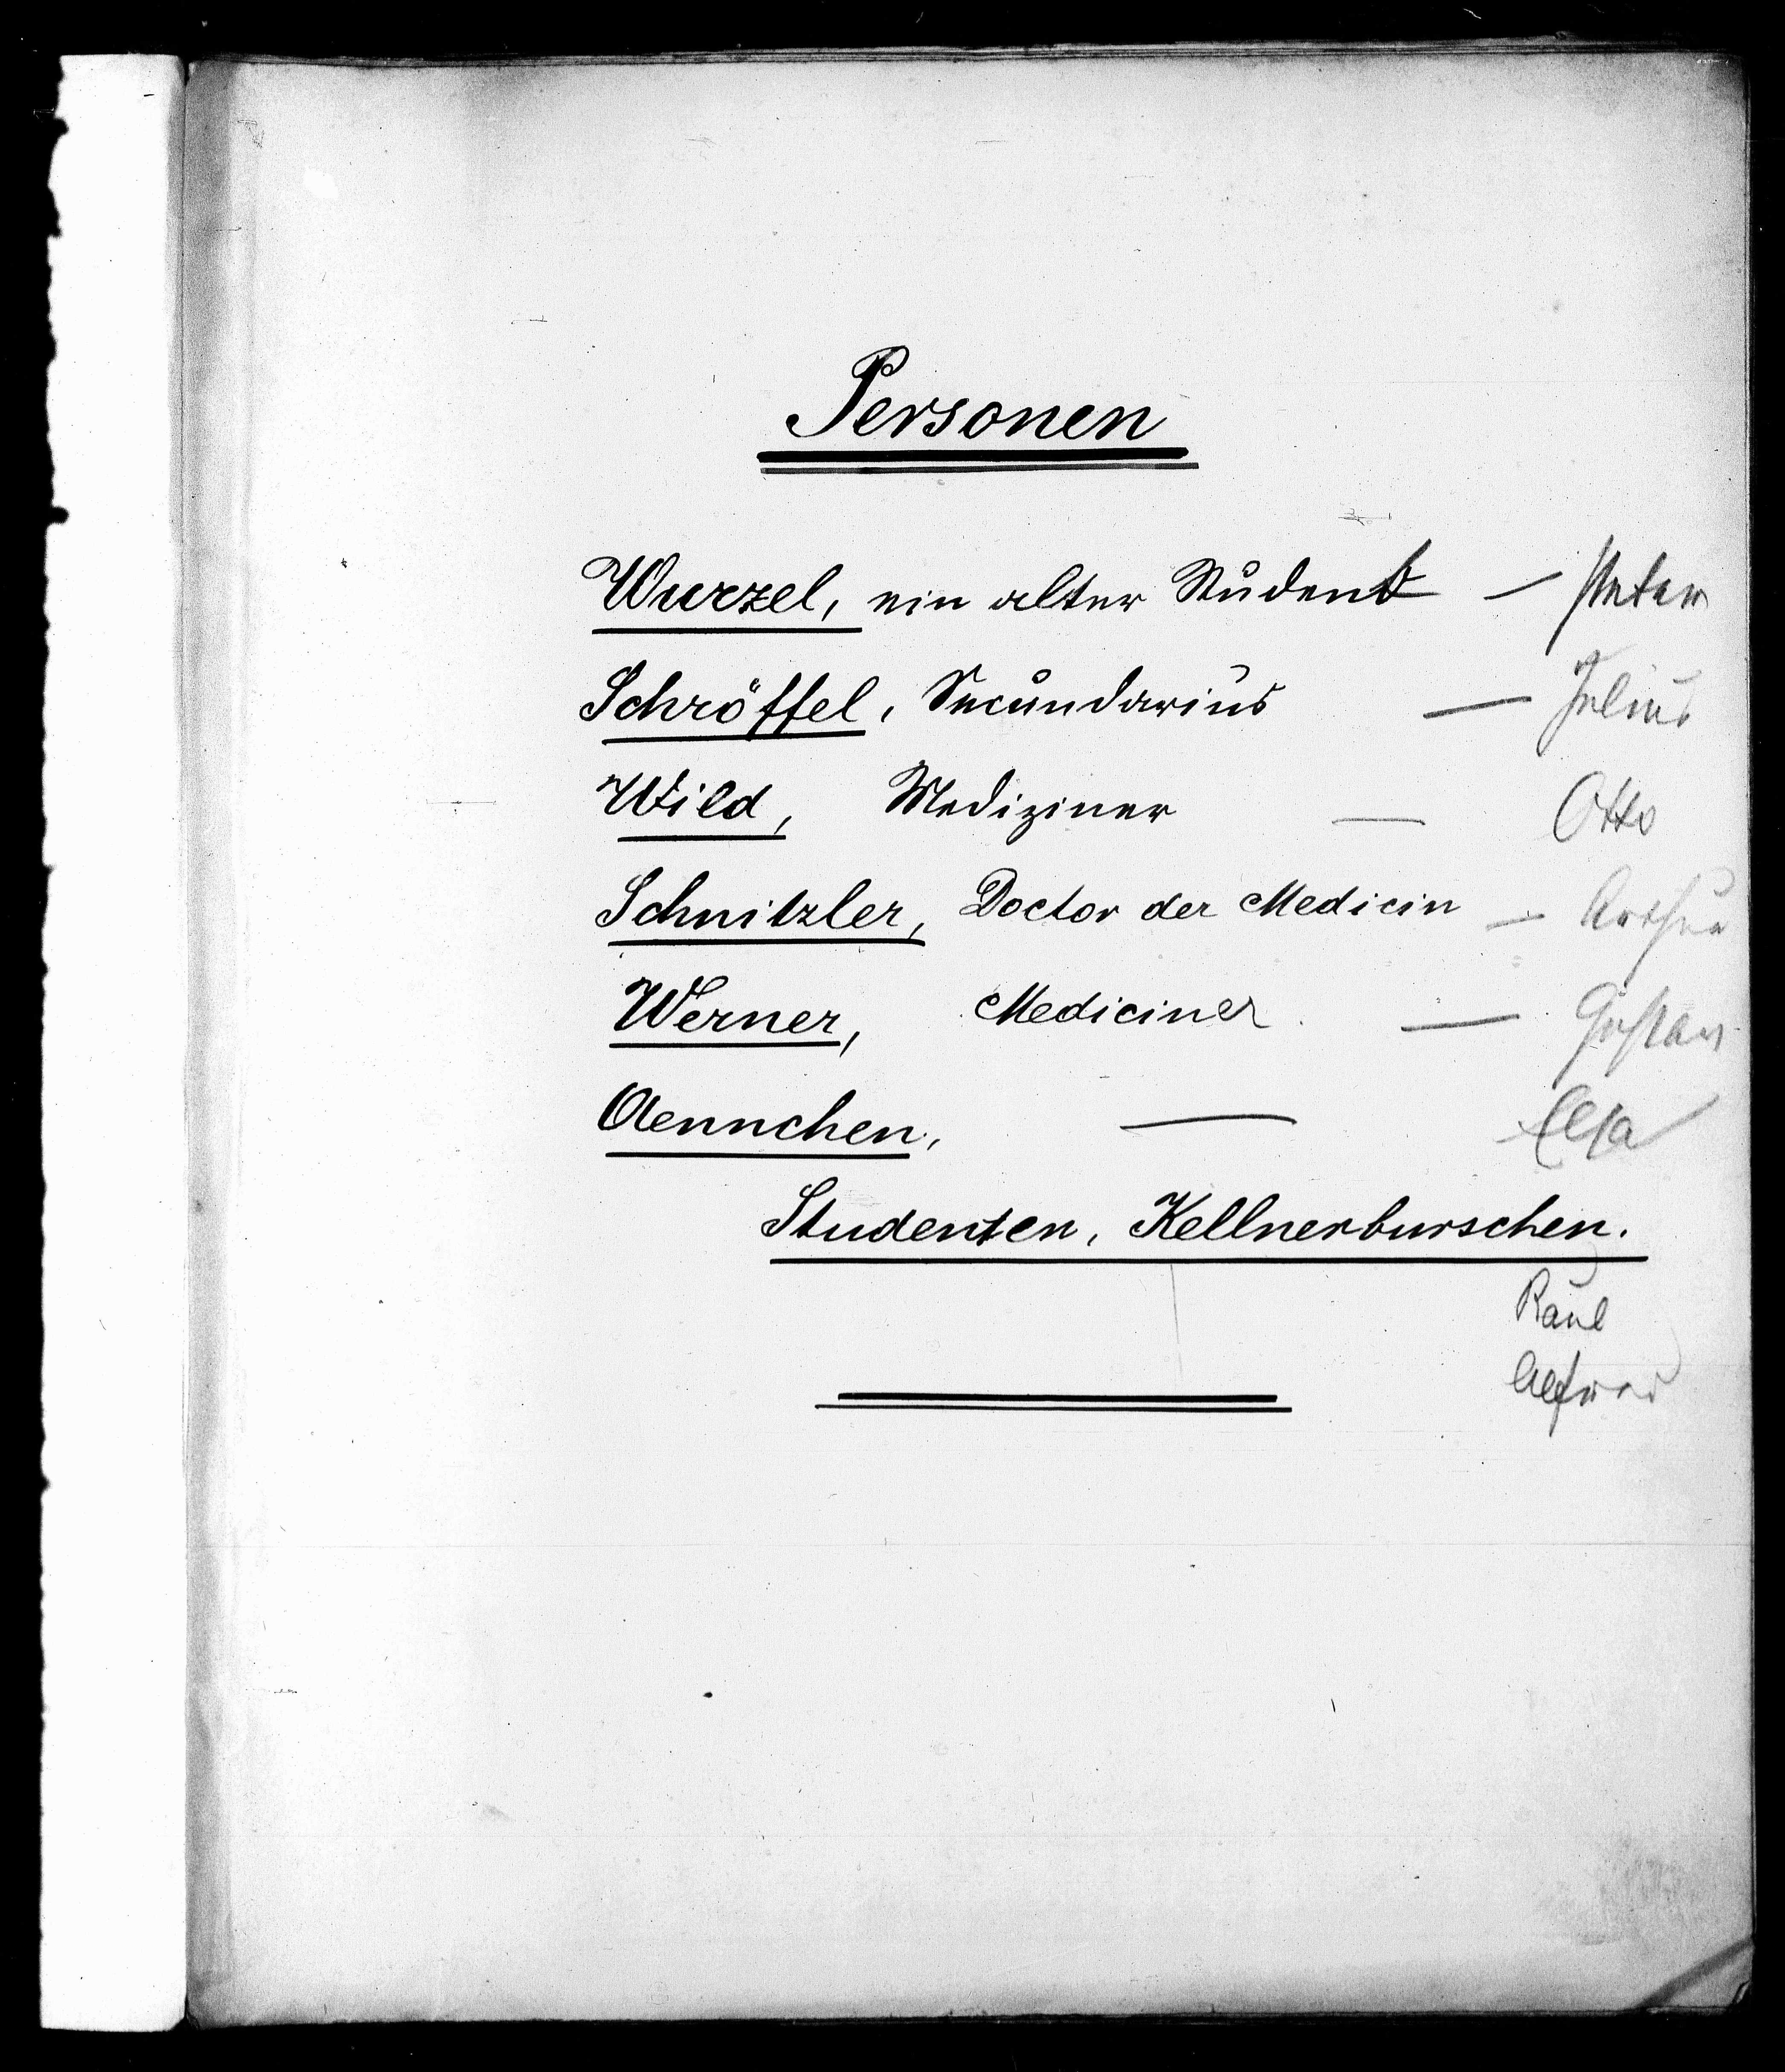 Personen
Wurzel, ein alter Student — Peter
Schröffel, Secundarius — Julius
Wild, Mediziner — Otto
Schnitzler, Doctor der Medicin — Arthur
Werner, Mediciner — Gustav
Aennchen, — Elsa
Studenten, Kellnerburschen.
Raul
Alfred